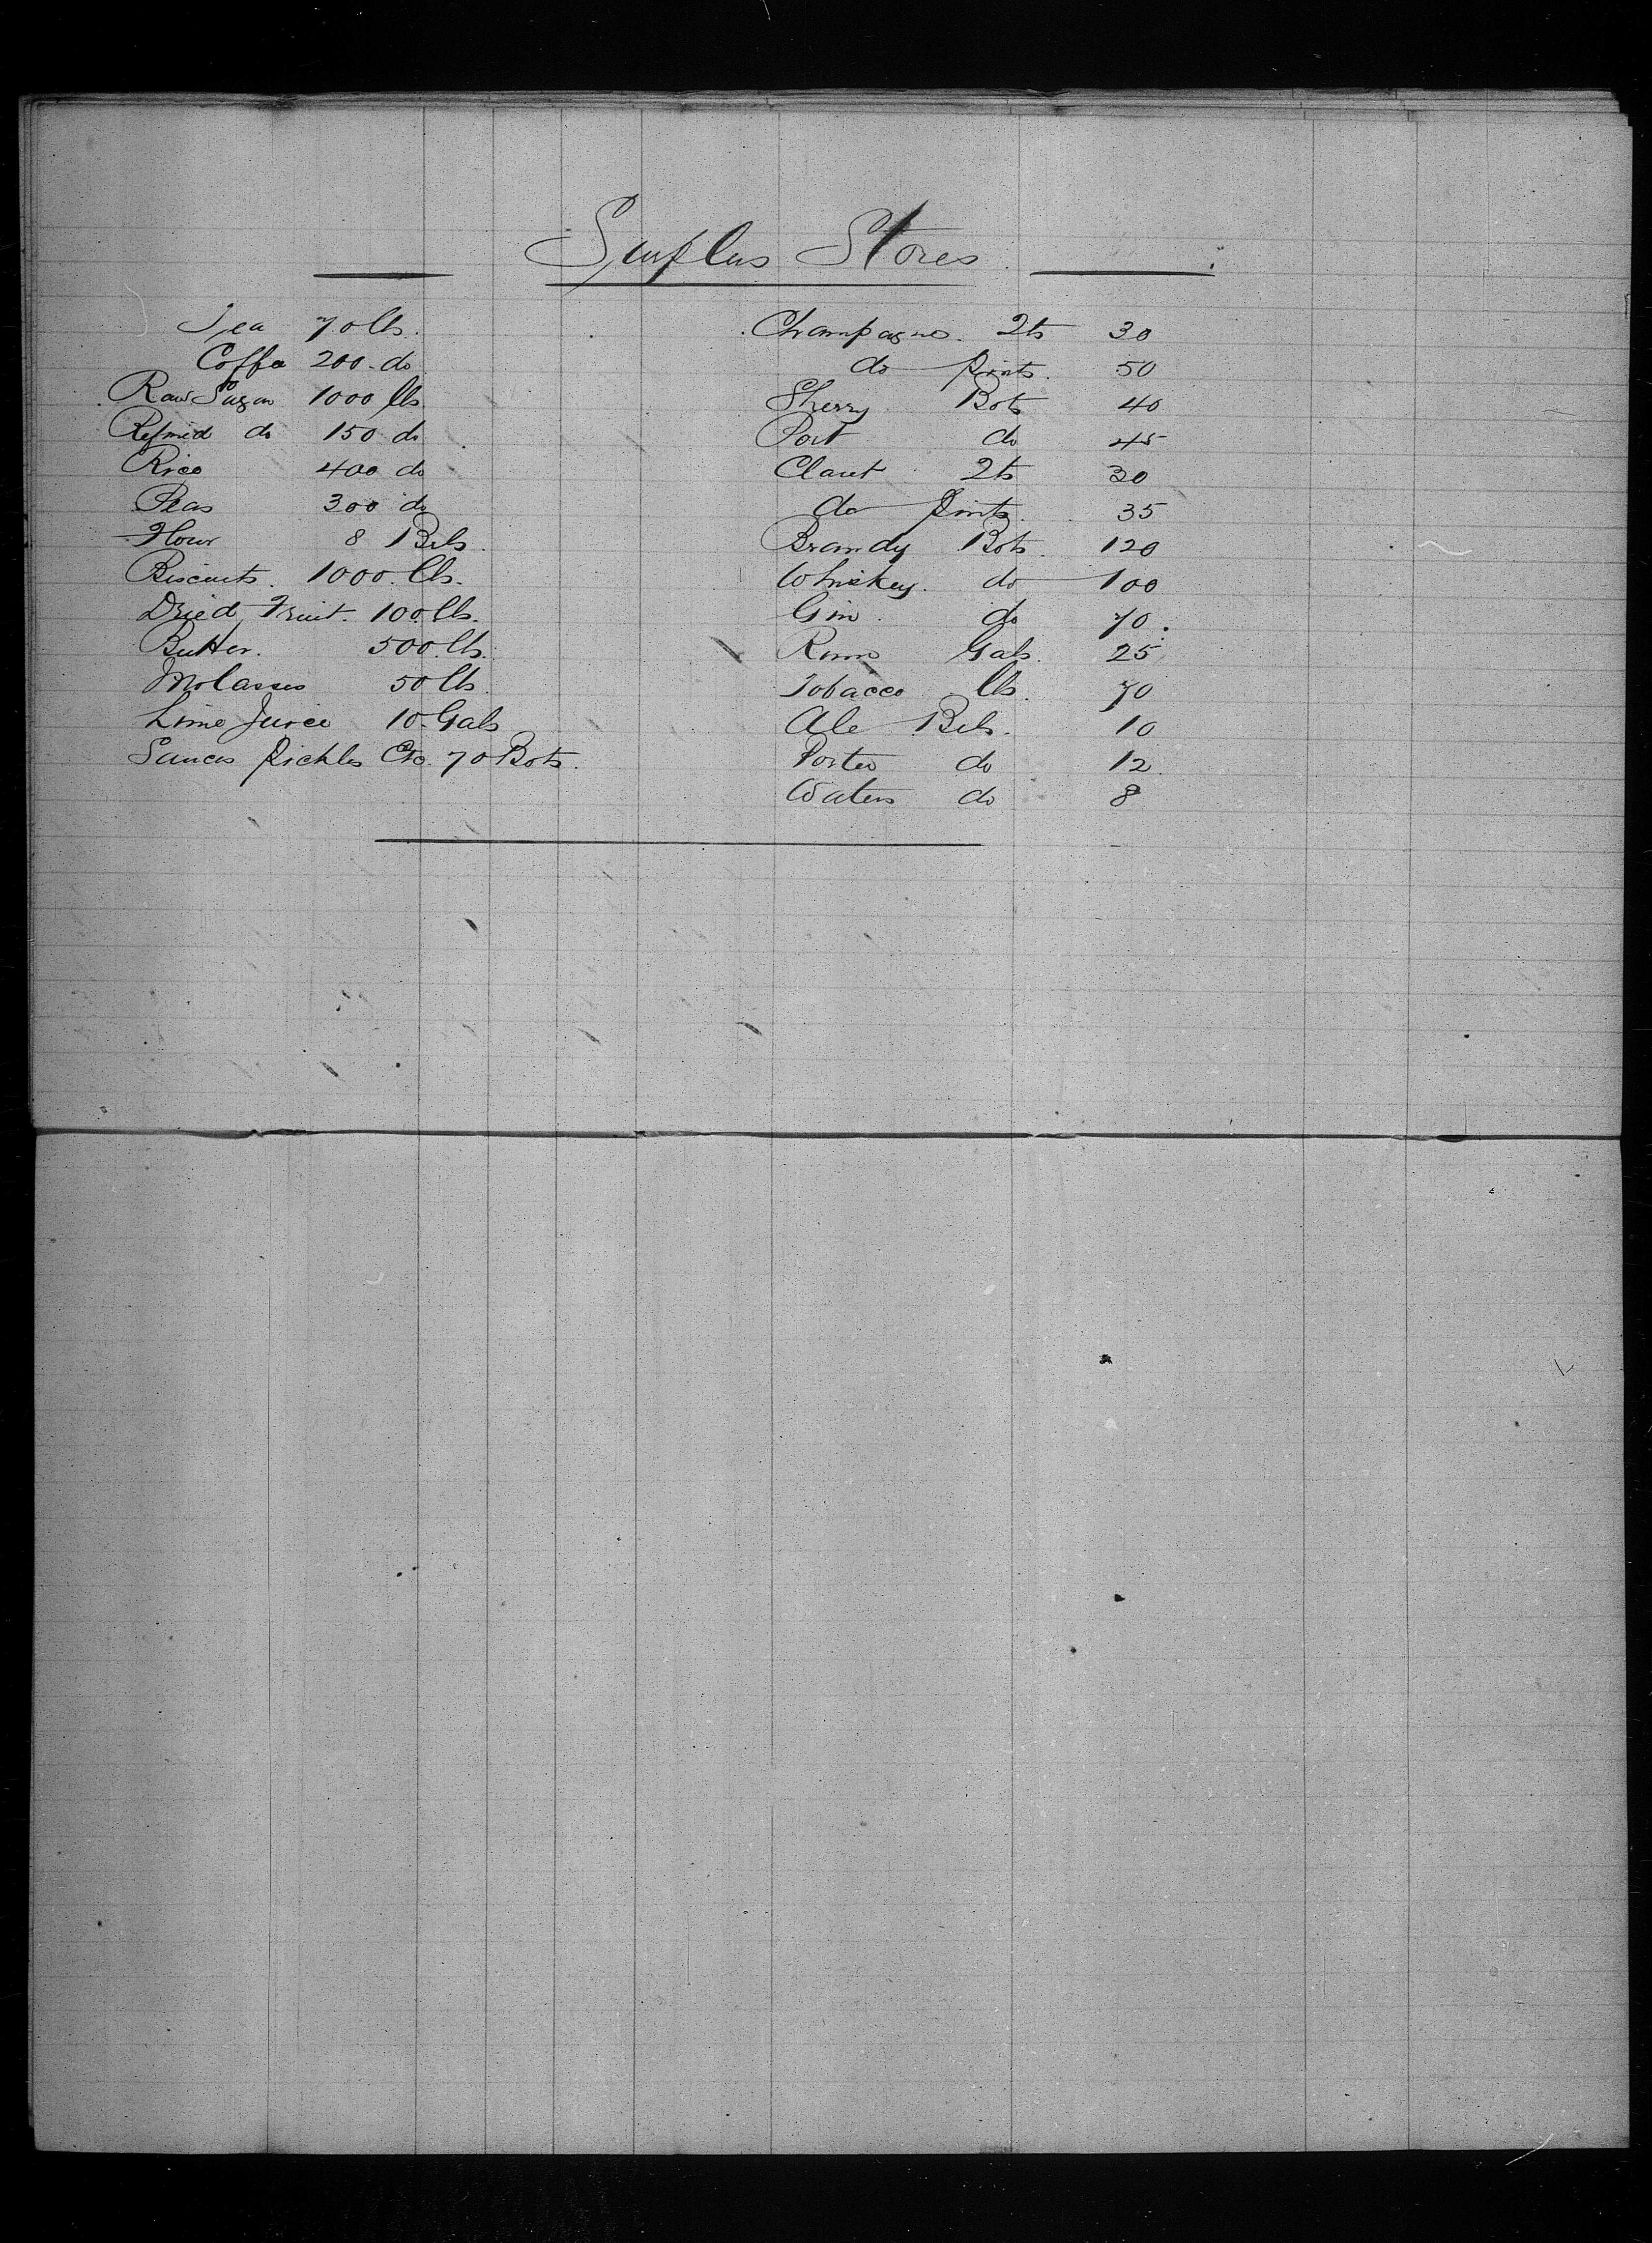 Surplus Stores
Tea 70 lbs.
Coffe 200 do
Raw Sugar 1000 lbs
Refined do 150 do
Rice 400 do
Peas 300 do
Flour 8 Bels.
Biscuits. 1000. lbs.
Dried Fruit. 100. lbs.
Butter. 500. lbs.
Molasses 50 lbs.
Lime Juice 10 Gals
Sauces Pickles Etc. 70 Bots.
Champagne. Qts 30
do pints. 50
Sherry Bots 40
Port do 45
Claret Qts 30
do pints. 35
Brandy Bots. 120
Whiskey. do 100
Gin. do 70.
Rum Gals. 25
Tobacco lbs. 70
Ale Bels. 10
Porter do 12.
Waters do 8